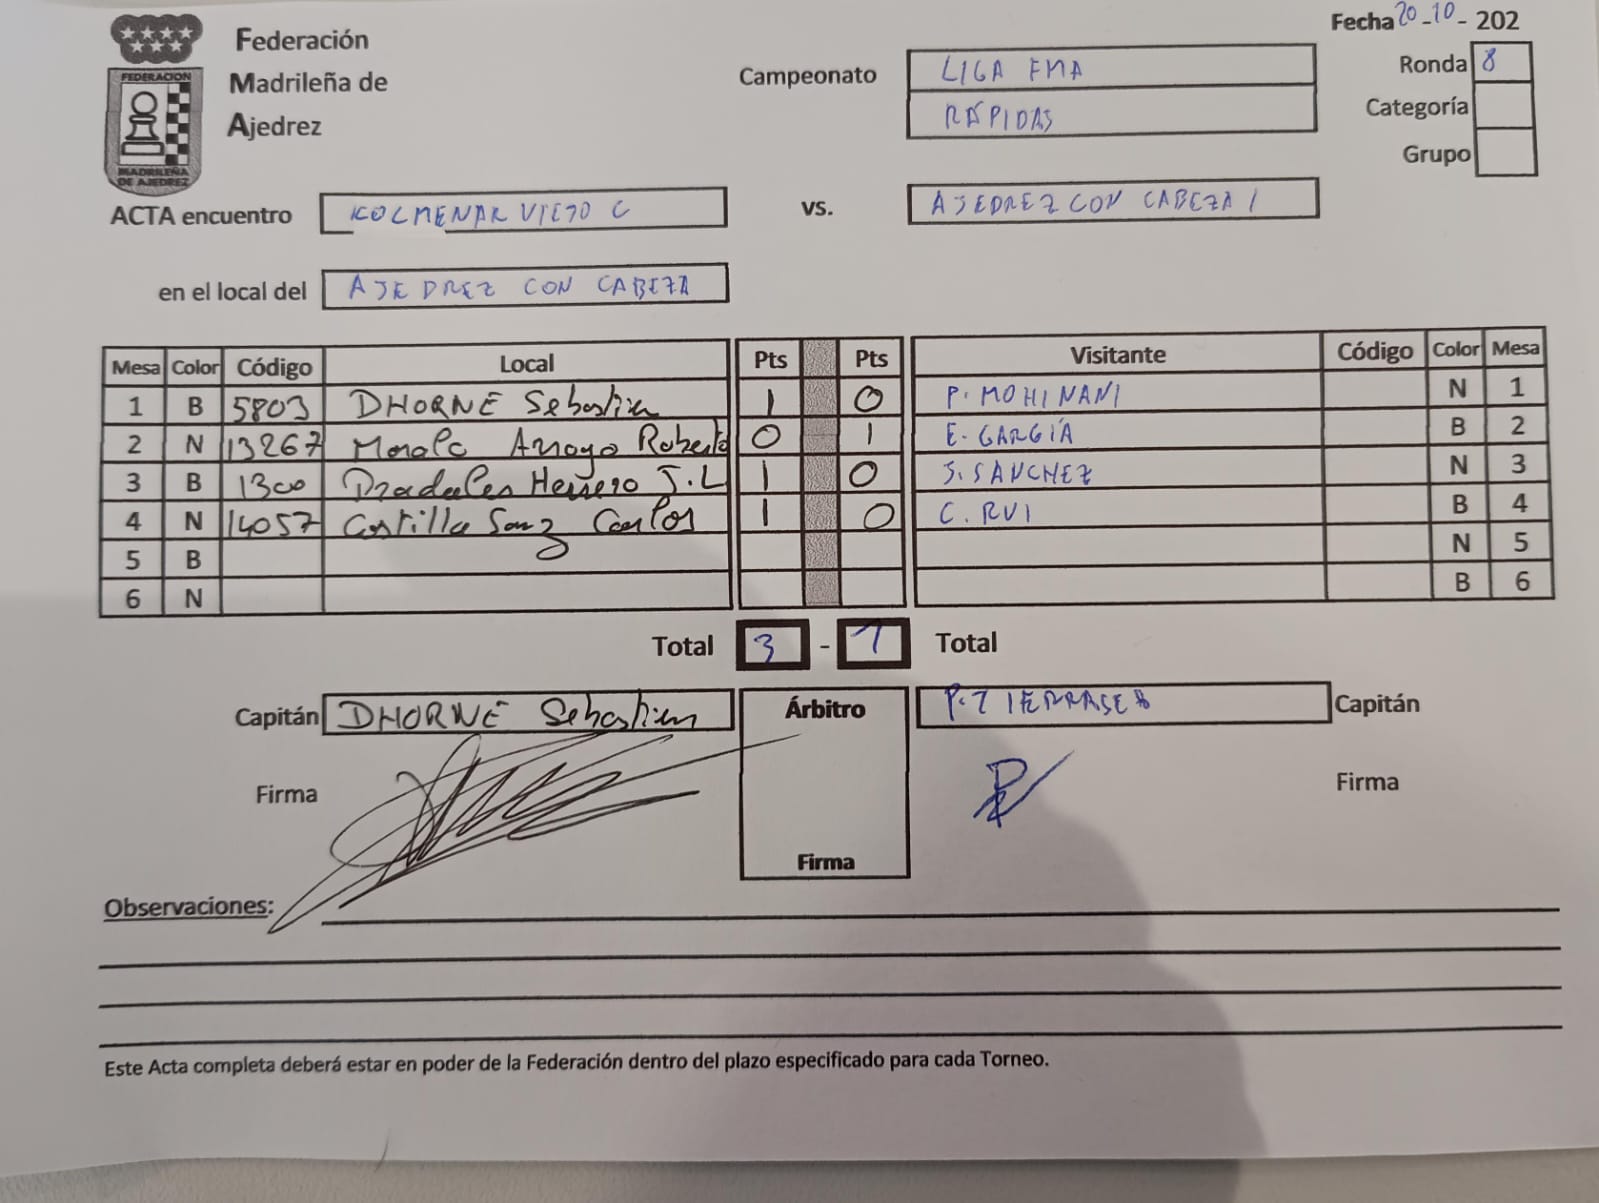 Fecha 20-10-202
Federación
Madrileña de
Ajedrez
FEDERACION
MADRILEÑA
DE AJEDREZ
Campeonato LIGA FMA
RÁPIDAS
Ronda 8
Categoría
Grupo
ACTA encuentro KOLMENAR VIEJO C vs. AJEDREZ CON CABEZA 1
en el local del AJEDREZ CON CABEZA
Mesa Color Código Local Pts Pts Visitante Código Color Mesa
1 B 5803 DHORNE Sebastien 1 0 P. MOHINANI N 1
2 N 13267 Arroyo Roberto 0 1 E. GARGÍA B 2
3 B 1300 Pradales Herrero J.L 1 0 J. SANCHEZ N 3
4 N 14057 Costilla Sanz Carlos 1 0 C. RUI B 4
5 B N 5
6 N B 6
Total 3 - 1 Total
Capitán DHORNE Sebastien Árbitro Capitán
Firma Firma
Firma
Observaciones:
Este Acta completa deberá estar en poder de la Federación dentro del plazo especificado para cada Torneo.